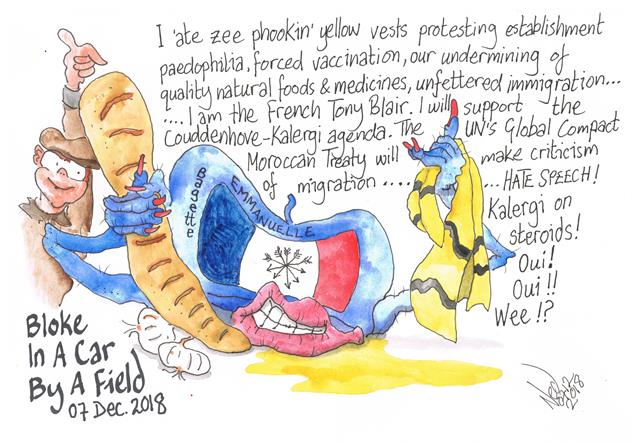 I 'ate zee phookin' yellow vests protesting establishment
paedophilia, forced vaccination, our undermining of
quality natural foods & medicines, unfettered immigration...
.... I am the French Tony Blair. I will support the
Couddenhove-Kalergi agenda. The UN's Global Compact
Moroccan Treaty will make criticism
of migration .... ... HATE SPEECH!
Kalergi on
steroids!
Oui!
Oui!!
Wee!?
Bagette
EMMANUELLE
Bloke
In A Car
By A Field
07 Dec. 2018
2018